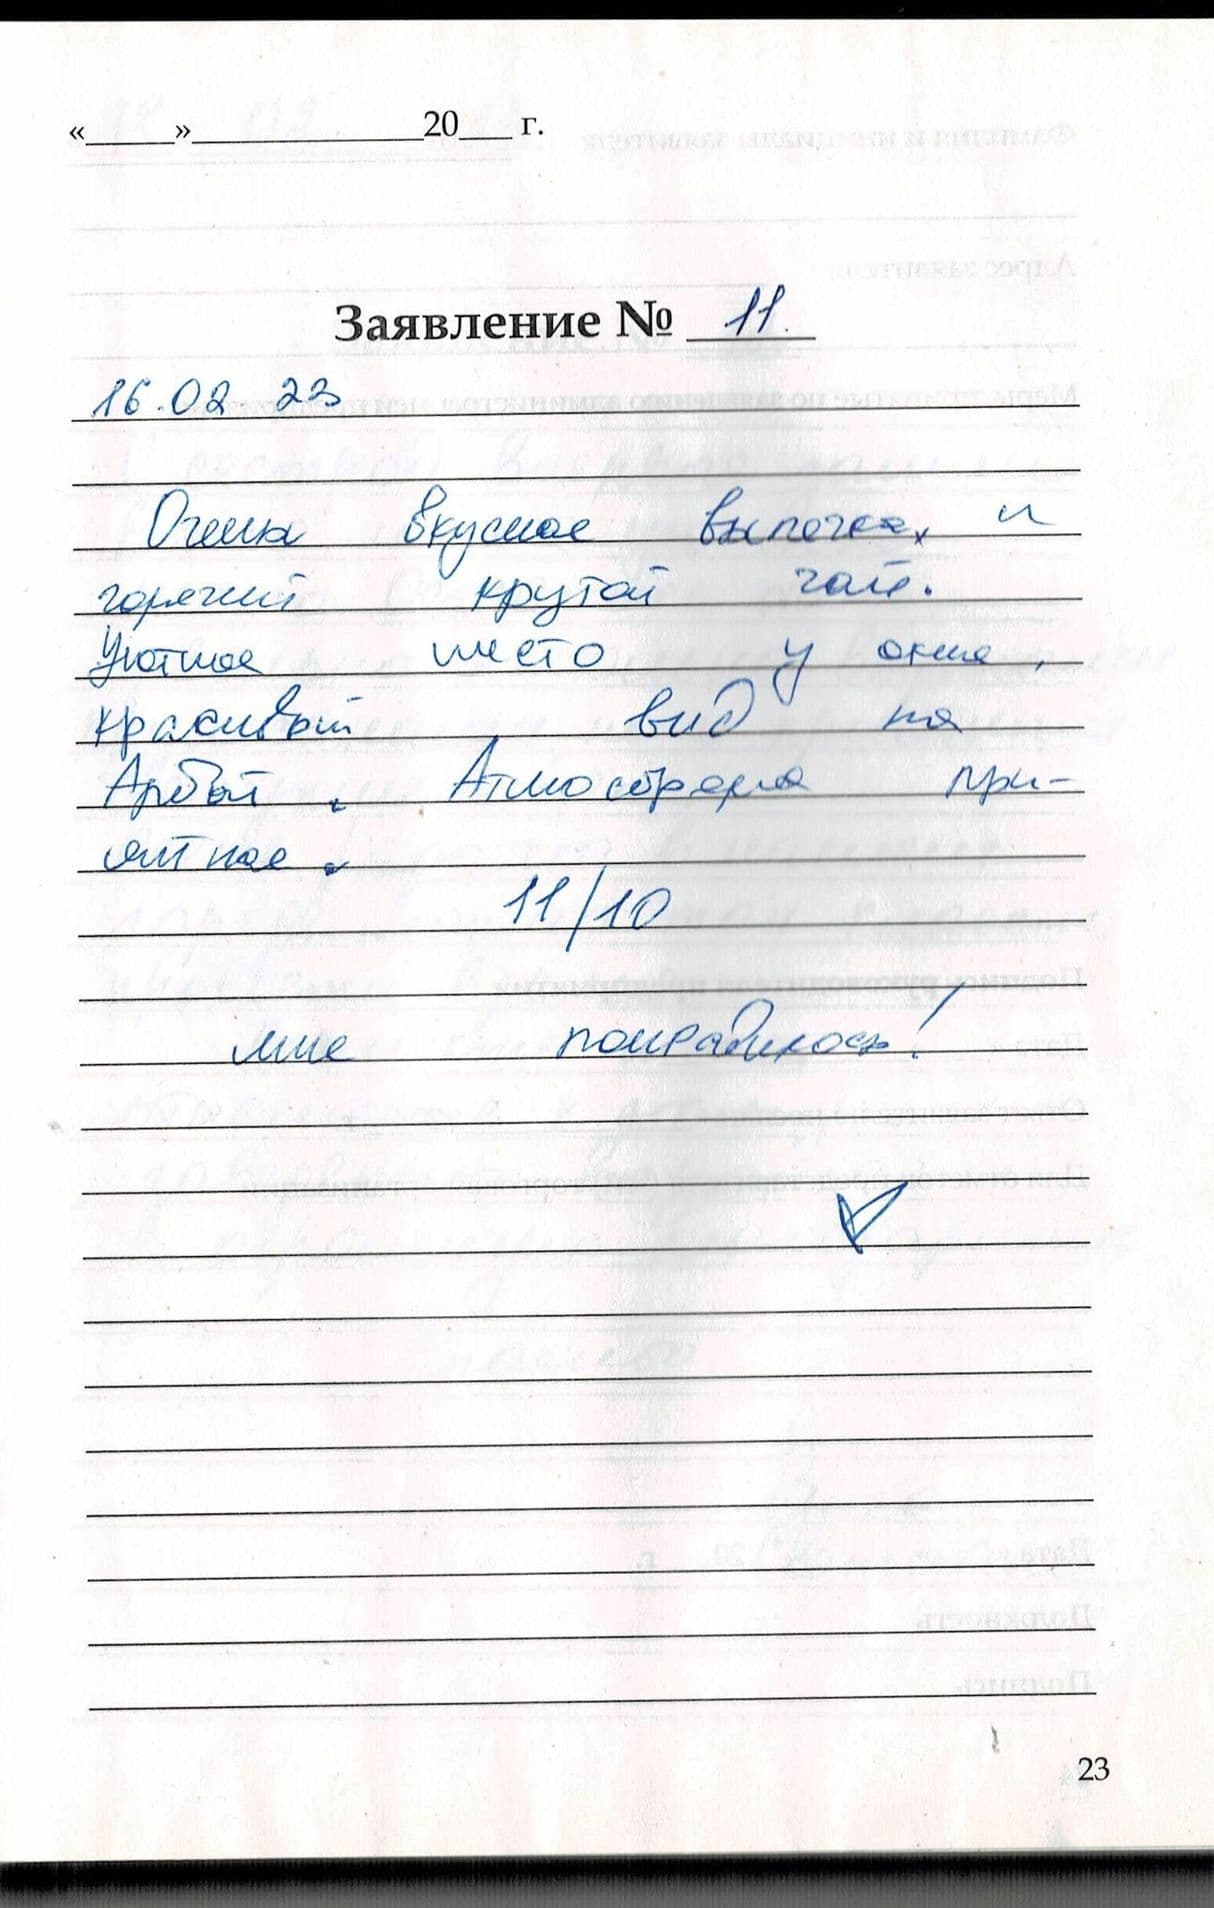 «_____»_____________20___ г.
Заявление № 11.
16.02 23
Очень вкусная выпечка, и
горячий крутой чай.
Уютное место у окна,
красивый вид на
Арбат. Атмосфера при-
ятная.
11/10
мне понравилось!
23